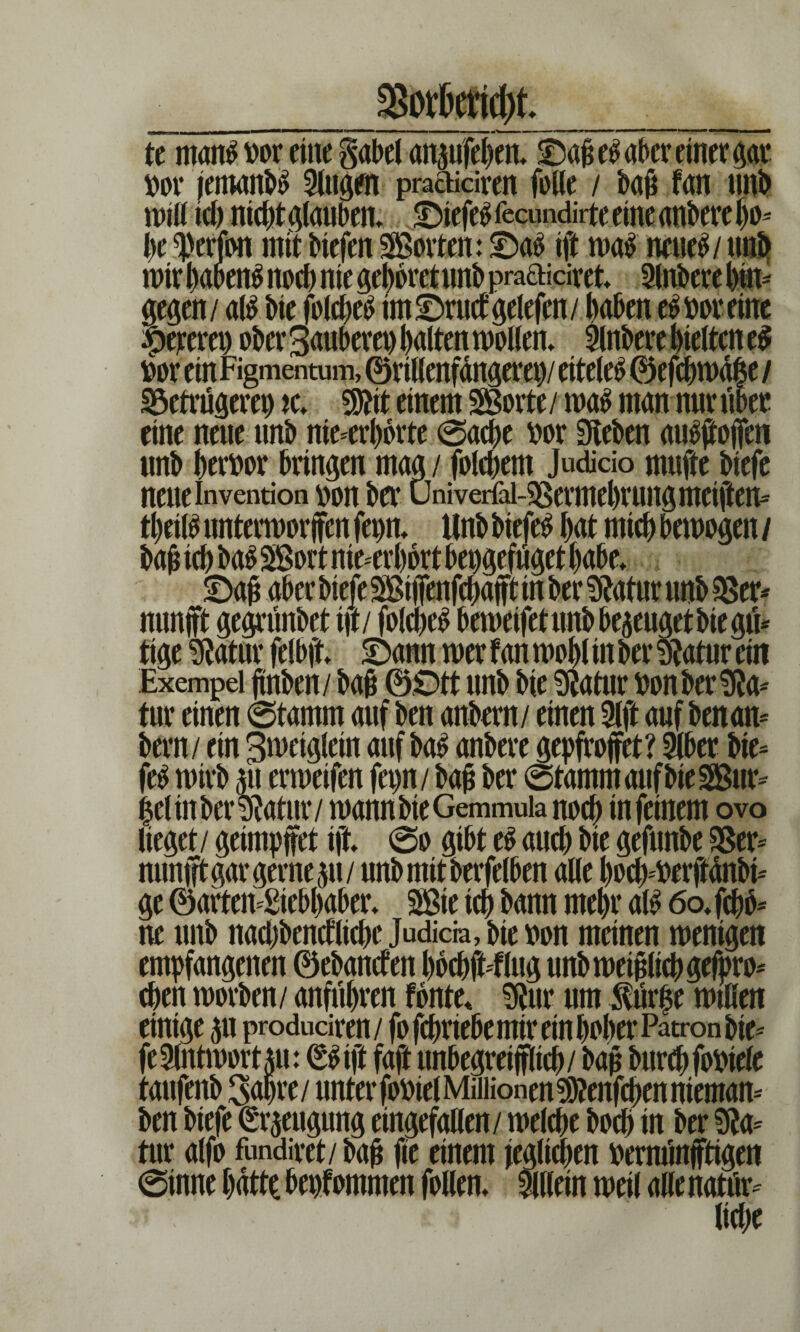 Vorbericht.
te mans vor eine Fabel anzusehen. Daß es aber einer gar
vor jemands Augen practiciren solle / daß kan und
will ich nicht glauben. Dieses secundirte eine andere ho-
he Person mit diesen Worten: Das ist was neues / und
wir habens noch nie gehöret und practiciret. Andere hin-
gegen / als die solches im Druck gelesen / haben es vor eine
Hexerey oder Zauberey halten wollen. Andere hielten es
vor ein Figmentum, Grillenfängerey / eiteles Geschwätze /
Betrügerey ꝛc. Mit einem Worte / was man nur über
eine neue und nie-erhörte Sache vor Reden ausstossen
und hervor bringen mag / solchem Judicio muste diese
neue Invention von der Universal-Vermehrung meisten-
theils unterworffen seyn. Und dieses hat mich bewogen /
daß ich das Wort nie-erhört beygefüget habe.
Daß aber diese Wissenschafft in der Natur und Ver-
nunfft gegründet ist / solches beweiset und bezeuget die gü-
tige Natur selbst. Dann wer kan wohl in der Natur ein
Exempel finden / daß GOtt und die Natur von der Na-
tur einen Stamm auf den andern / einen Ast auf den an-
dern / ein Zweiglein auf das andere gepfroffet? Aber die-
ses wird zu erweisen seyn / daß der Stamm auf die Wur-
tzel in der Natur / wann die Gemmula noch in seinem ovo
lieget / geimpffet ist. So gibt es auch die gesunde Ver-
nunfft gar gerne zu / und mit derselben alle hoch-verständi-
ge Garten-Liebhaber. Wie ich dann mehr als 60. schö-
ne und nachdenckliche Judicia, die von meinen wenigen
empfangenen Gedancken höchst-klug und weißlich gespro-
chen worden / anführen könte. Nur um Kürtze willen
einige zu produciren / so schriebe mir ein hoher Patron die-
se Antwort zu: Es ist fast unbegreifflich / daß durch soviele
tausend Jahre / unter soviel Millionen Menschen nieman-
den diese Erzeugung eingefallen / welche doch in der Na-
tur also fundiret / daß sie einem jeglichen vernünfftigen
Sinne hätte beykommen sollen. Allein weil alle natür-
liche